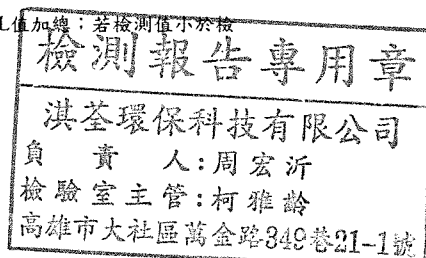 L值加總；若檢測值小於檢
檢測報告專用章
淇荃環保科技有限公司
負責人:周宏沂
檢驗室主管:柯雅齡
高雄市大社區萬金路349巷21-1號